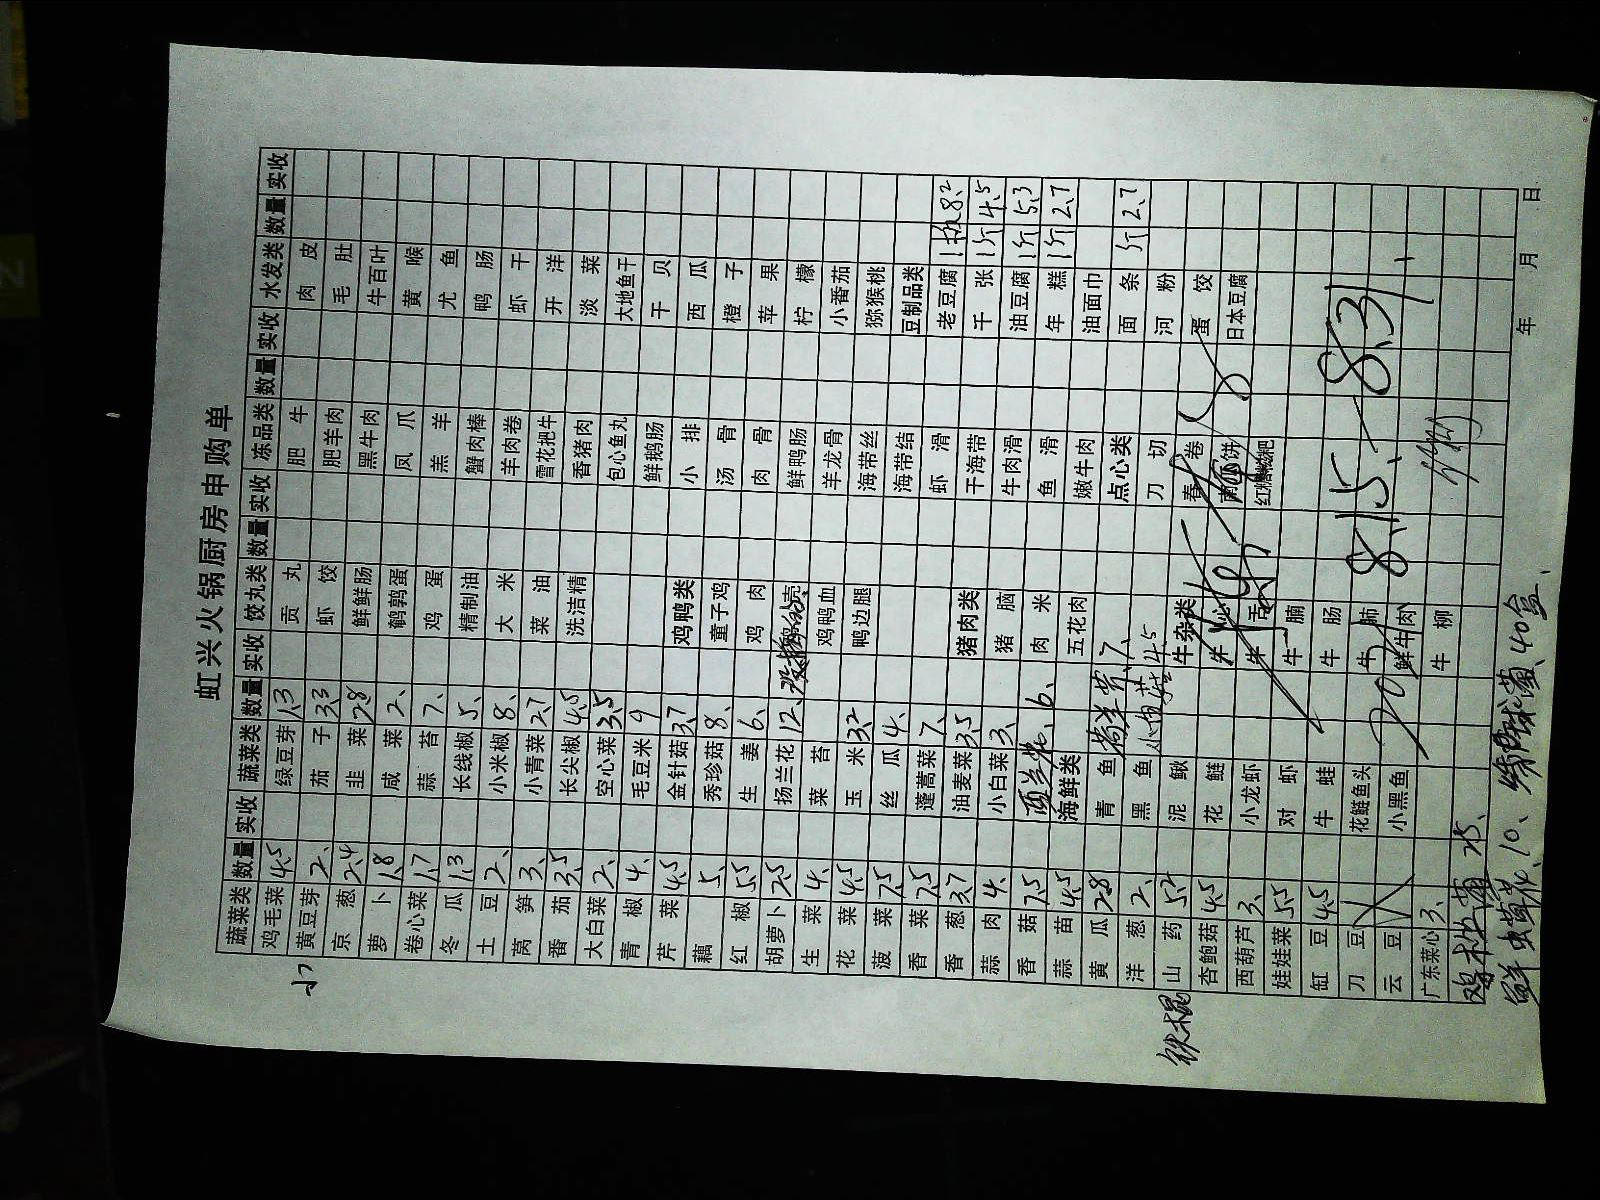 虹兴火锅厨房申购单
蔬菜类 数量 实收 蔬菜类 数量 实收 饺丸类 数量 实收 冻品类 数量 实收 水发类 数量 实收
鸡毛菜 4.5 绿豆芽 1.3 贡丸 肥牛 肉皮
小 黄豆芽 2、 茄子 3.3 虾饺 肥羊肉 毛肚
京葱 2.4 韭菜 2.8 鲜鲜肠 黑牛肉 牛百叶
萝卜 1.8 咸菜 2、 鹌鹑蛋 凤爪 黄喉
卷心菜 1.7 蒜苔 7、 鸡蛋 羔羊 尤鱼
冬瓜 1.3 长线椒 5、 精制油 蟹肉棒 鸭肠
土豆 2、 小米椒 8、 大米 羊肉卷 虾干
莴笋 3、 小青菜 2.7 菜油 雪花把牛 开洋
番茄 3.5 长尖椒 4.5 洗洁精 香猪肉 淡菜
大白菜 2、 空心菜 3.5 包心鱼丸 大地鱼干
青椒 4、 毛豆米 9 鲜鹅肠 干贝
芹菜 4.5 金针菇 3.7 鸡鸭类 小排 西瓜
藕 5、 秀珍菇 8、 童子鸡 汤骨 橙子
红椒 5.5 生姜 6、 鸡肉 肉骨 苹果
胡萝卜 2.5 扬兰花 12、 鲜鸭肠 柠檬
生菜 4、 菜苔 鸡鸭血 羊龙骨 小番茄
花菜 4.5 玉米 3.2 鸭边腿 海带丝 猕猴桃
菠菜 7.5 丝瓜 4、 海带结 豆制品类
香菜 7.5 蓬蒿菜 7、 虾滑 老豆腐 1板 8.2
香葱 3.7 油麦菜 3.5 猪肉类 干海带 千张 1斤 4.5
蒜肉 4、 小白菜 3、 猪脑 牛肉滑 油豆腐 1斤 5.3
香菇 7.5 西兰花 6、 肉米 鱼滑 年糕 1斤 2.7
蒜苗 4.5 海鲜类 五花肉 嫩牛肉 油面巾
黄瓜 2.8 青鱼 荷兰芹 7、 点心类 面条 1斤 2.7
洋葱 2、 黑鱼 4.5 刀切 河粉
铁棍 山药 5.2 泥鳅 牛杂类 春卷 蛋饺
杏鲍菇 4.5 花鲢 牛心 南瓜饼 日本豆腐
西葫芦 3、 小龙虾 牛舌 红糖糍粑
娃娃菜 5.5 对虾 牛腩
缸豆 4.5 牛蛙 牛肠
刀豆 花鲢鱼头 牛肺 8.15、-8.31、
云豆 小黑鱼 鲜牛肉
广东菜心 3、 牛柳
25、
鲜虫草花、10、 40盒、
年 月 日